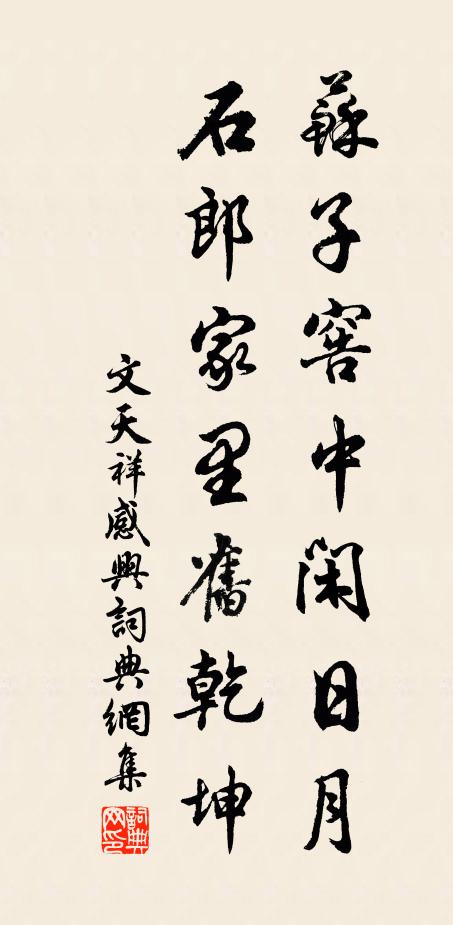 蘇子窖中閑日月
石郎家里舊乾坤
文天祥感興詞典網集
詞典網印